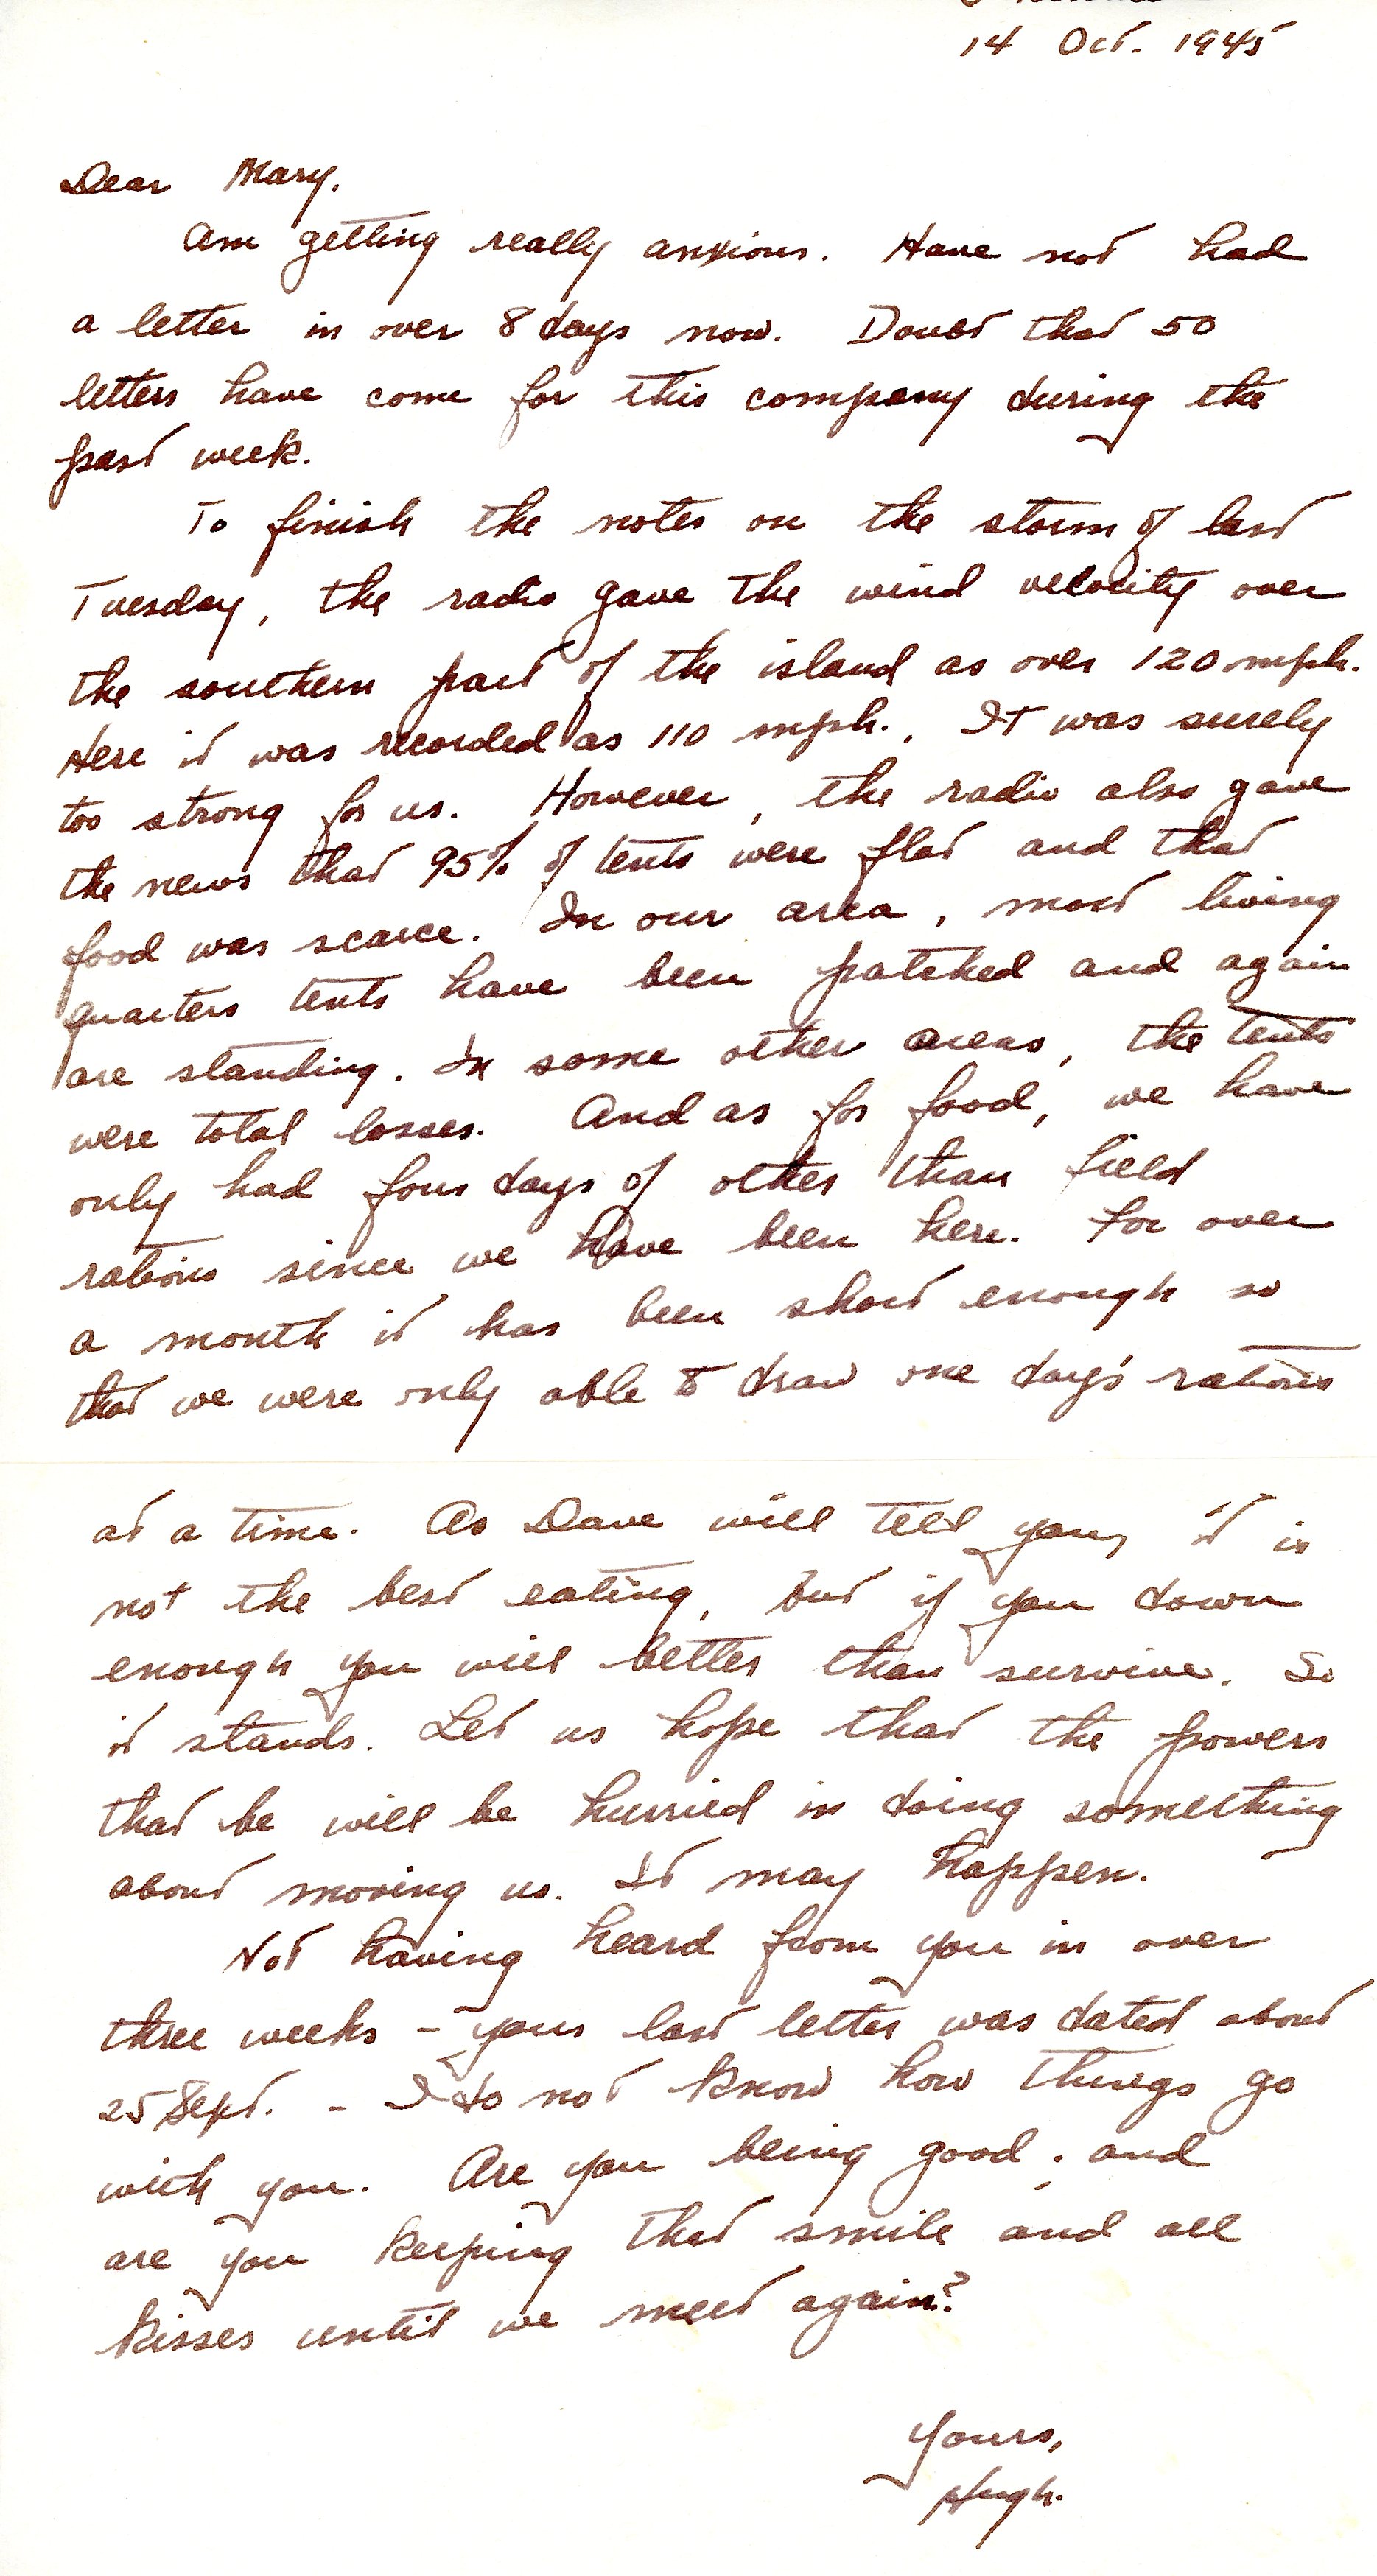 14 Oct. 1945
Dear Mary.
Am getting really anxious. Have not had
a letter in over 8 days now. Doubt that 50
letters have come for this company during the
past week.
To finish the notes on the storm of last
Tuesday, the radio gave the wind velocity over
the southern part of the island as over 120 mph.
Here it was recorded as 110 mph., It was surely
too strong for us. However, the radio also gave
the news that 95% of tents were flat and that
food was scarce. In our area, most living
quarters tents have been patched and again
are standing. In some other areas, the tents
were total losses. And as for food, we have
only had four days of other than field
rations since we have been here. For over
a month it has been short enough so
that we were only able to draw one day's rations
at a time. As Dave will tell you, it is
not the best eating, but if you down
enough you will better than survive. So
it stands. Let us hope that the powers
that be will be hurried in doing something
about moving us. It may happen.
Not having heard from you in over
three weeks - your last letter was dated about
25 Sept. - I do not know how things go
with you. Are you being good, and
are you keeping that smile and all
kisses until we meet again?
Yours,
Hugh.